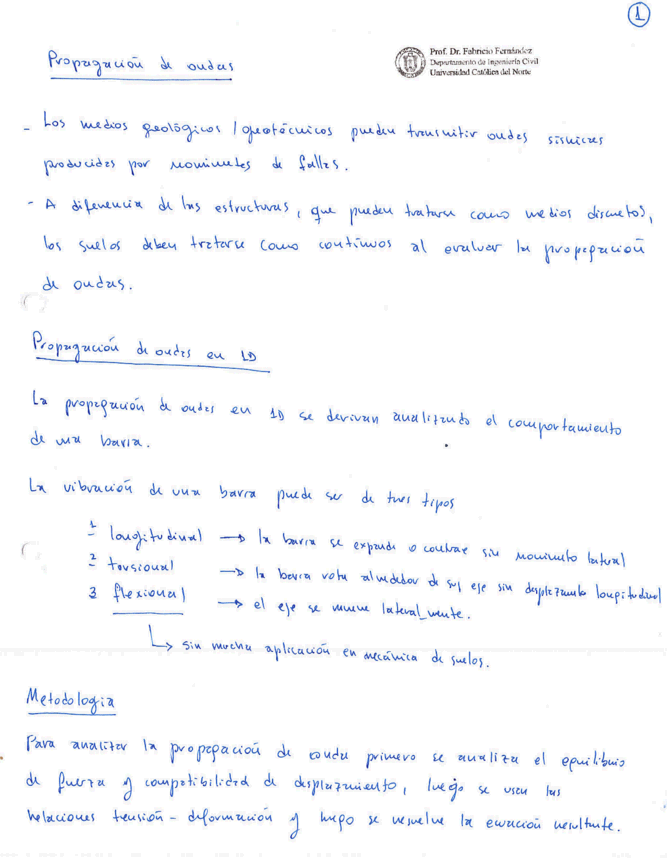 1
Propagación de ondas
Prof. Dr. Fabricio Fernández
Departamento de Ingeniería Civil
Universidad Católica del Norte
- Los medios geológicos / geotécnicos pueden transmitir ondas sísmicas
producidas por movimientos de fallas.
- A diferencia de las estructuras, que pueden tratarse como medios discretos,
los suelos deben tratarse como continuos al evaluar la propagación
de ondas.
Propagación de ondas en 1D
La propagación de ondas en 1D se derivan analizando el comportamiento
de una barra.
La vibración de una barra puede ser de tres tipos
1 longitudinal → la barra se expande o contrae sin movimiento lateral
2 torsional → la barra rota alrededor de su eje sin desplazamiento longitudinal
3 flexional → el eje se mueve lateral_mente.
↳ sin mucha aplicación en mecánica de suelos.
Metodologia
Para analizar la propagación de onda primero se analiza el equilibrio
de fuerza y compatibilidad de desplazamiento, luego se usan las
relaciones tensión - deformación y luego se resuelve la ecuación resultante.